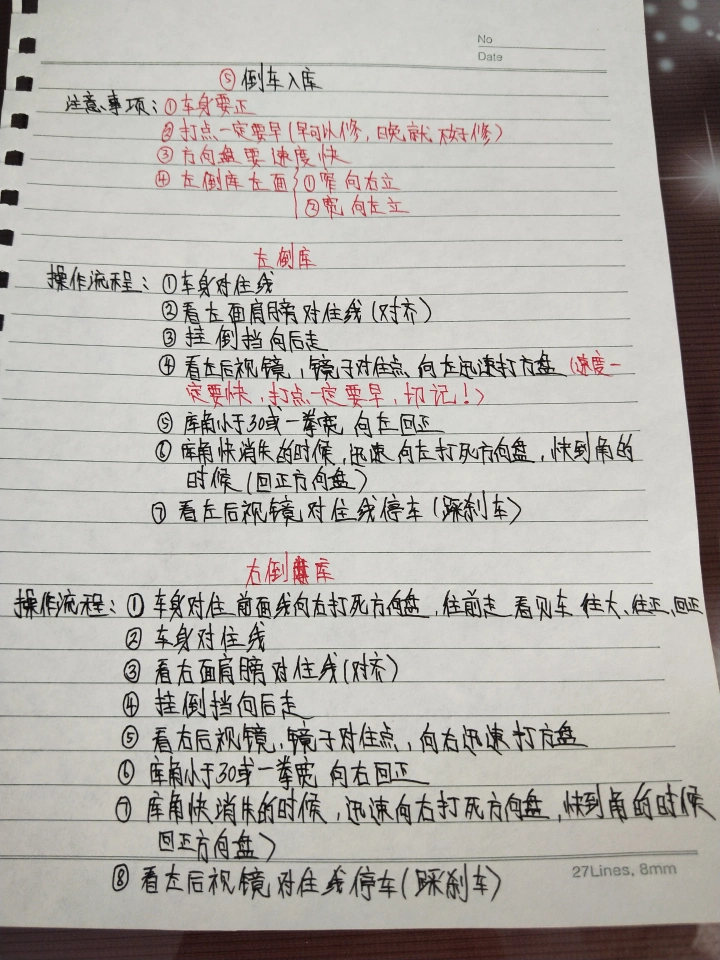 No
Date
⑤ 倒车入库
注意事项：①车身要正
②打点一定要早(早可以修，晚就不好修)
③方向盘要速度快
④左倒库左面 ①窄向右立
②宽向左立
左倒库
操作流程：①车身对住线
②看左面肩膀对住线(对齐)
③挂倒挡向后走
④看左后视镜，镜子对住点、向左迅速打方盘(速度一
定要快，打点一定要早，切记！)
⑤库角小于30或一拳宽 向左回正
⑥库角快消失的时候，迅速向左打死方向盘，快到角的
时候(回正方向盘)
⑦看左后视镜对住线停车(踩刹车)
右倒库
操作流程：①车身对住前面线向右打死方向盘，往前走 看见车 住大、住正、回正
②车身对住线
③看右面肩膀对住线(对齐)
④挂倒挡向后走
⑤看右后视镜，镜子对住点，向右迅速打方盘
⑥库角小于30或一拳宽 向右回正
⑦库角快消失的时候，迅速向右打死方向盘，快到角的时候
回正方向盘)
⑧看左后视镜对住线停车(踩刹车)
27Lines, 8mm